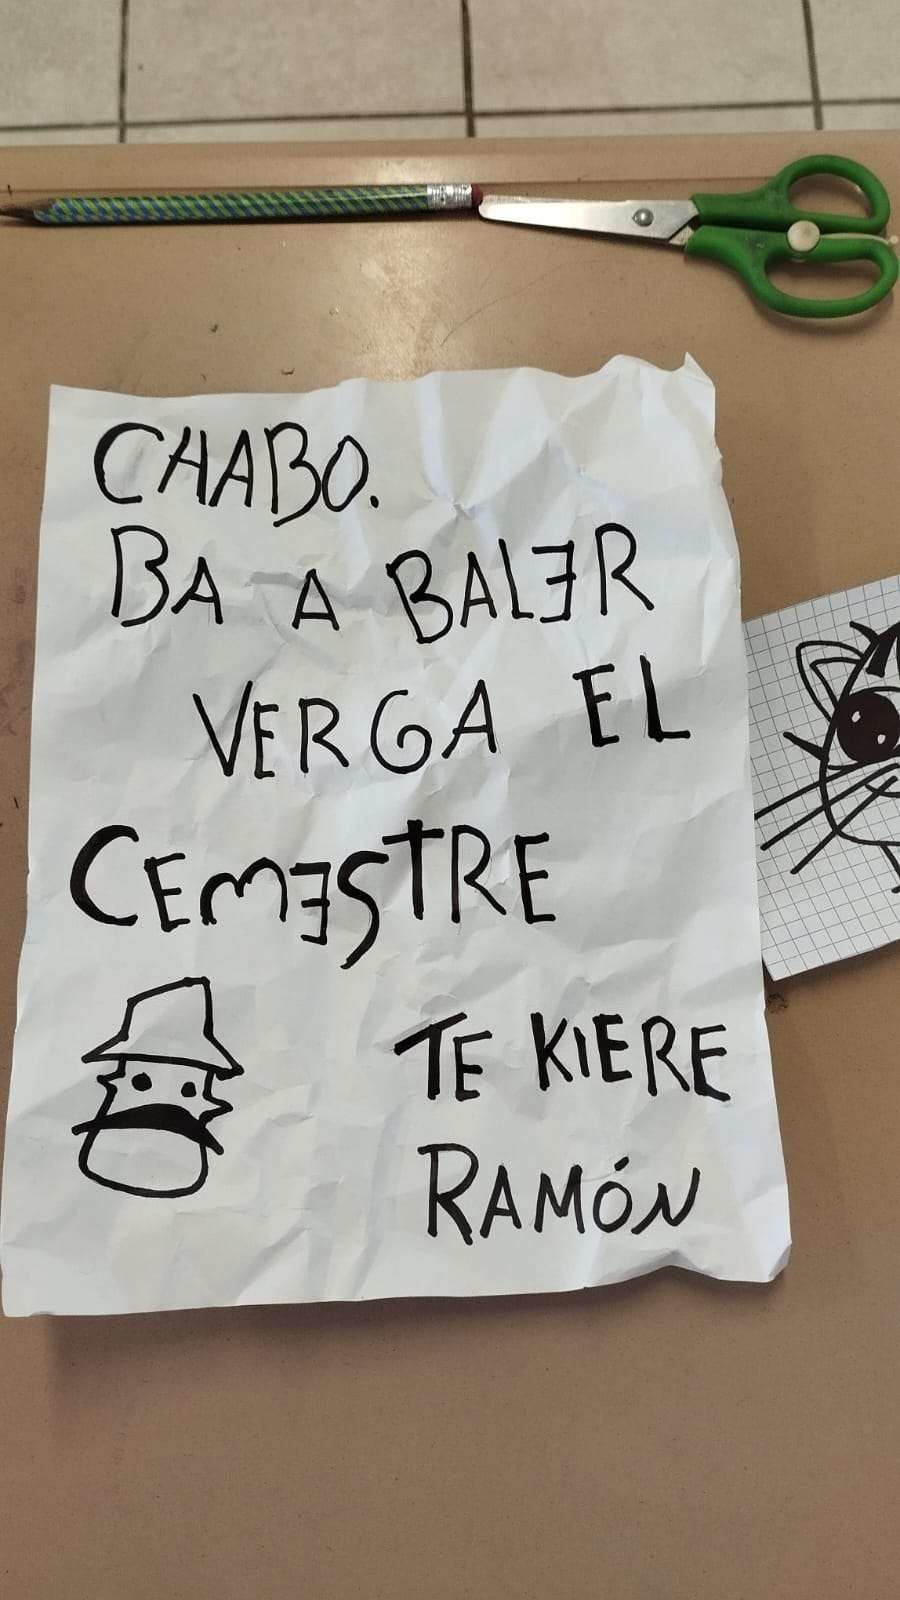 CHABO.
BA A BALER
VERGA EL
CEMESTRE
TE KIERE
RAMÓN